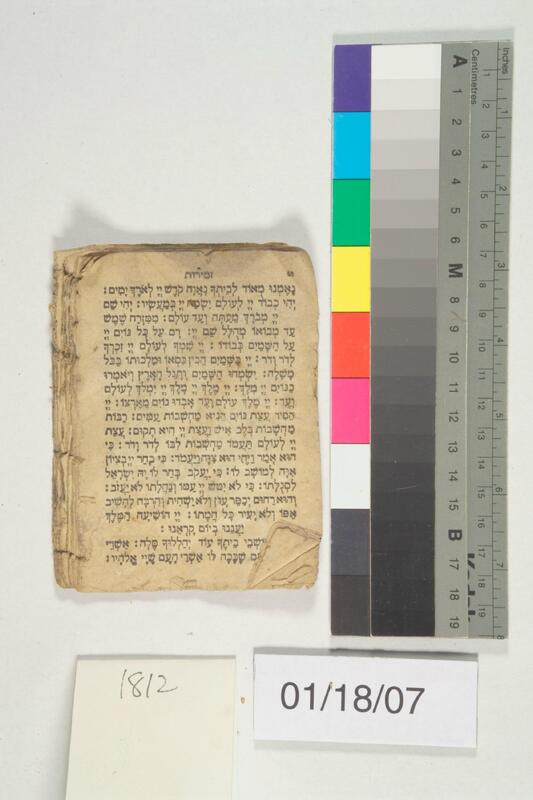 זמירות
נֶאֶמְנוּ מְאוֹד לְבֵיתְךָ נַאֲוָה קֹדֶשׁ יְיָ לְאֹרֶךְ יָמִים:
יְהִי כְבוֹד יְיָ לְעוֹלָם יִשְׂמַח יְיָ בְּמַעֲשָׂיו: יְהִי שֵׁם
יְיָ מְבֹרָךְ מֵעַתָּה וְעַד עוֹלָם: מִמִּזְרַח שֶׁמֶשׁ
עַד מְבוֹאוֹ מְהֻלָּל שֵׁם יְיָ: רָם עַל כָּל גּוֹיִם יְיָ
עַל הַשָּׁמַיִם כְּבוֹדוֹ: יְיָ שִׁמְךָ לְעוֹלָם יְיָ זִכְרְךָ
לְדֹר וָדֹר: יְיָ בַּשָּׁמַיִם הֵכִין כִּסְאוֹ וּמַלְכוּתוֹ בַּכֹּל
מָשָׁלָה: יִשְׂמְחוּ הַשָּׁמַיִם וְתָגֵל הָאָרֶץ וְיֹאמְרוּ
בַגּוֹיִם יְיָ מָלָךְ: יְיָ מֶלֶךְ יְיָ מָלָךְ יְיָ יִמְלֹךְ לְעוֹלָם
וָעֶד: יְיָ מֶלֶךְ עוֹלָם וָעֶד אָבְדוּ גוֹיִם מֵאַרְצוֹ: יְיָ
הֵפִיר עֲצַת גּוֹיִם הֵנִיא מַחְשְׁבוֹת עַמִּים: רַבּוֹת
מַחֲשָׁבוֹת בְּלֶב אִישׁ וַעֲצַת יְיָ הִיא תָקוּם: עֲצַת
יְיָ לְעוֹלָם תַּעֲמֹד מַחְשְׁבוֹת לִבּוֹ לְדֹר וָדֹר: כִּי
הוּא אָמַר וַיֶּהִי הוּא צִוָּה וַיַּעֲמֹד: כִּי בָחַר יְיָ בְּצִיּוֹן
אִוָּה לְמוֹשָׁב לוֹ: כִּי יַעֲקֹב בָּחַר לוֹ יָהּ יִשְׂרָאֵל
לִסְגֻלָּתוֹ: כִּי לֹא יִטֹּשׁ יְיָ עַמּוֹ וְנַחֲלָתוֹ לֹא יַעֲזוֹב:
וְהוּא רַחוּם יְכַפֵּר עָוֹן וְלֹא יַשְׁחִית וְהִרְבָּה לְהָשִׁיב
אַפּוֹ וְלֹא יָעִיר כָּל חֲמָתוֹ: יְיָ הוֹשִׁיעָה הַמֶּלֶךְ
יַעֲנֵנוּ בְיוֹם קָרְאֵנוּ:
יוֹשְׁבֵי בֵיתֶךָ עוֹד יְהַלְלוּךָ סֶּלָה: אַשְׁרֵי
שֶׁכָּכָה לוֹ אַשְׁרֵי הָעָם שֶׁיְיָ אֱלֹהָיו:
Inches
Centimetres
1 2 3 4 5 6 7 8
1 2 3 4 5 6 7 8 9 10 11 12 13 14 15 16 17 18 19
A 1 2 3 4 5 6 M 8 9 10 11 12 13 14 15 B 17 18 19
Kodak
1812
01/18/07